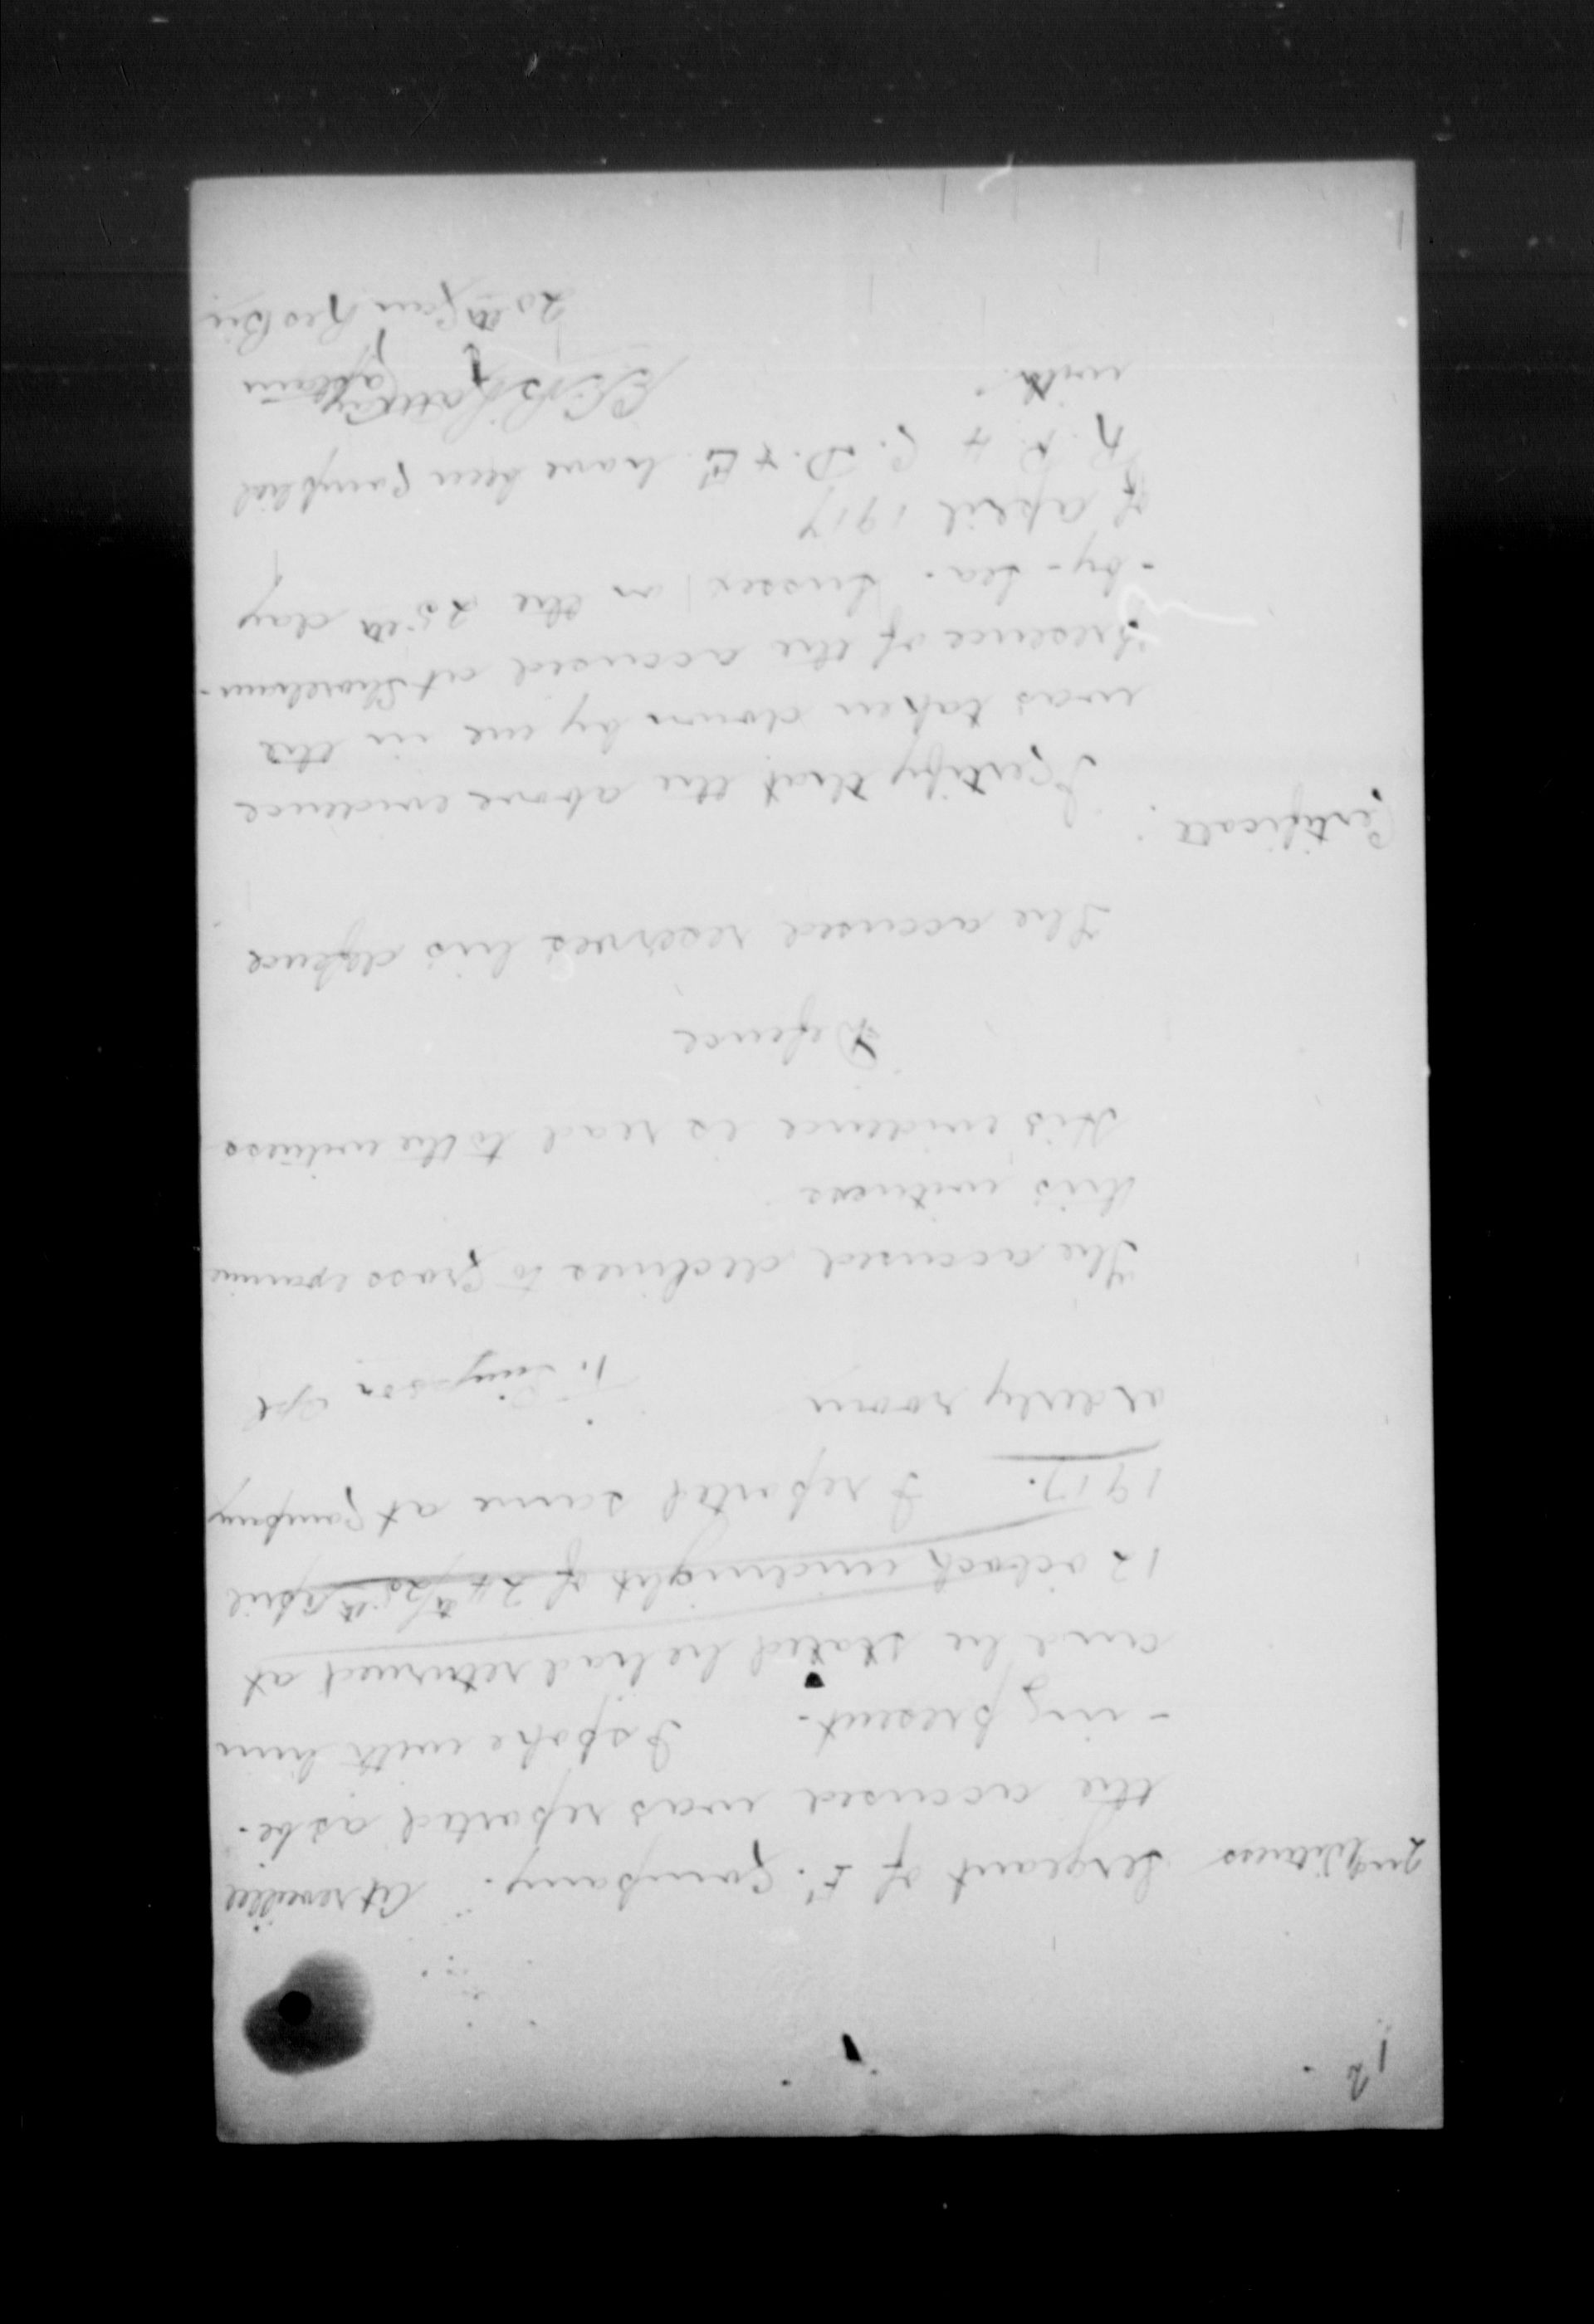 12
2nd Witness Sergeant of E. Company. At reveille
the accused was reported as be-
-ing present. I spoke with him
and he stated he had returned at
12 o'clock midnight of 24th/25th April
1917. I reported same at Company
orderly room
Simpson Sgt
The accused declines to Cross examine
this witness
His evidence is read to the witness
Defence
The accused reserves his defence
Certificate. I Certify that the above evidence
was taken down by me in the
presence of the accused at Shoreham-
-by-Sea. Sussex, on the 25th day
of April 1917
R. P. 4 C. D. & E. have been Complied
with.
Captain
20th Can Res Bn